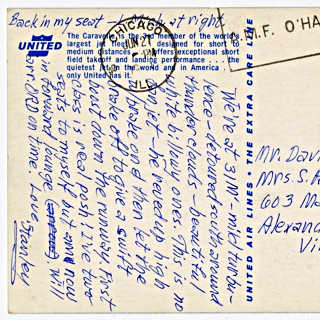 Back in my seat right.
UNITED
The Caravelle is the member of the world's
largest jet fleet. designed for short to
medium distances offers exceptional short
field takeoff and landing performance . . . the
quietest jet in the world and in America
only United has it.
CHICAGO
JUN 27
PM
ILL.
A.M.F. O'HA
We're at 31M - mild turbu-
lence - detoured south around
thunder clouds - beautiful
white billowy ones. This is no
jet - he revved up high
brake on & then let the
brake off to give a swift
boost down the runway. First
class is real posh! I've two
seats to myself but now
in forward lounge will
arr. ORD on time Love
Stanley
UNITED AIR LINES • THE EXTRA CARE LINE
Mr. Davi
Mrs. S. A
603 Ma
Alexan
Vi